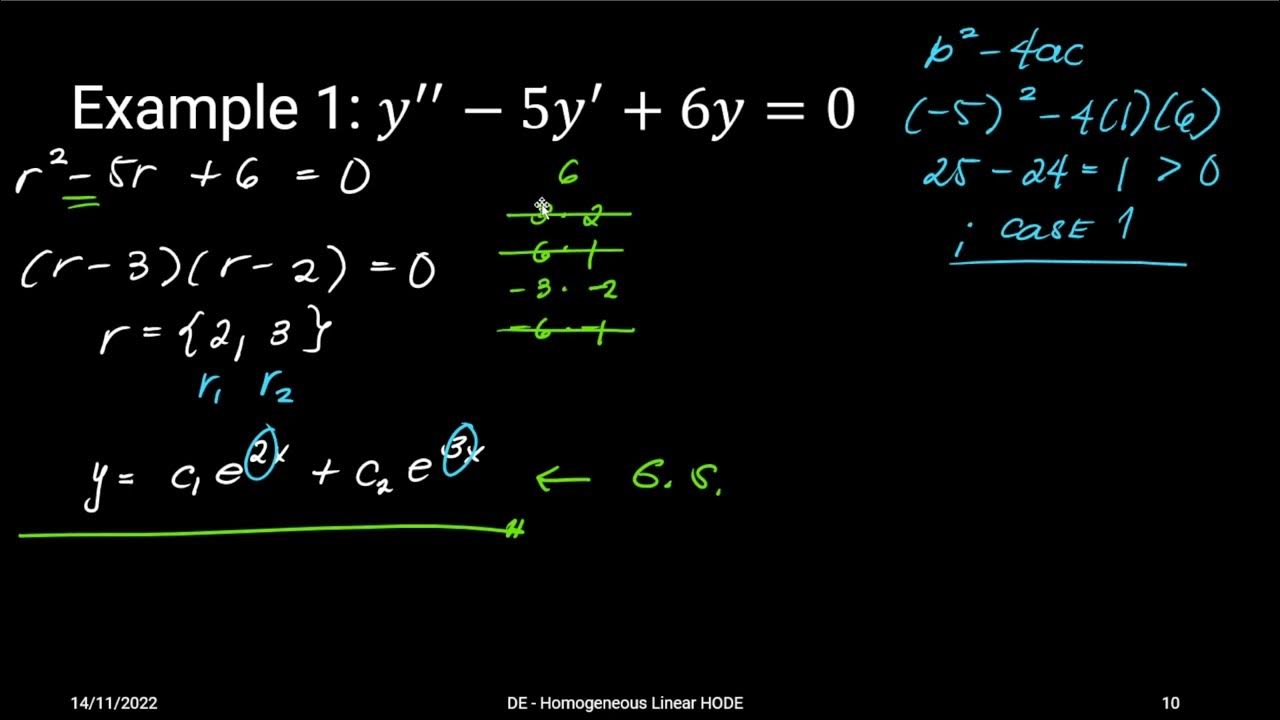 Example 1: y'' − 5y' + 6y = 0
r² − 5r + 6 = 0
(r − 3)(r − 2) = 0
r = {2, 3}
r₁ r₂
y = c₁e^2x + c₂e^3x ← G.S.
6
3 · 2
6 · 1
−3 · −2
−6 · −1
b² − 4ac
(−5)² − 4(1)(6)
25 − 24 = 1 > 0
; CASE 1
14/11/2022
DE - Homogeneous Linear HODE
10